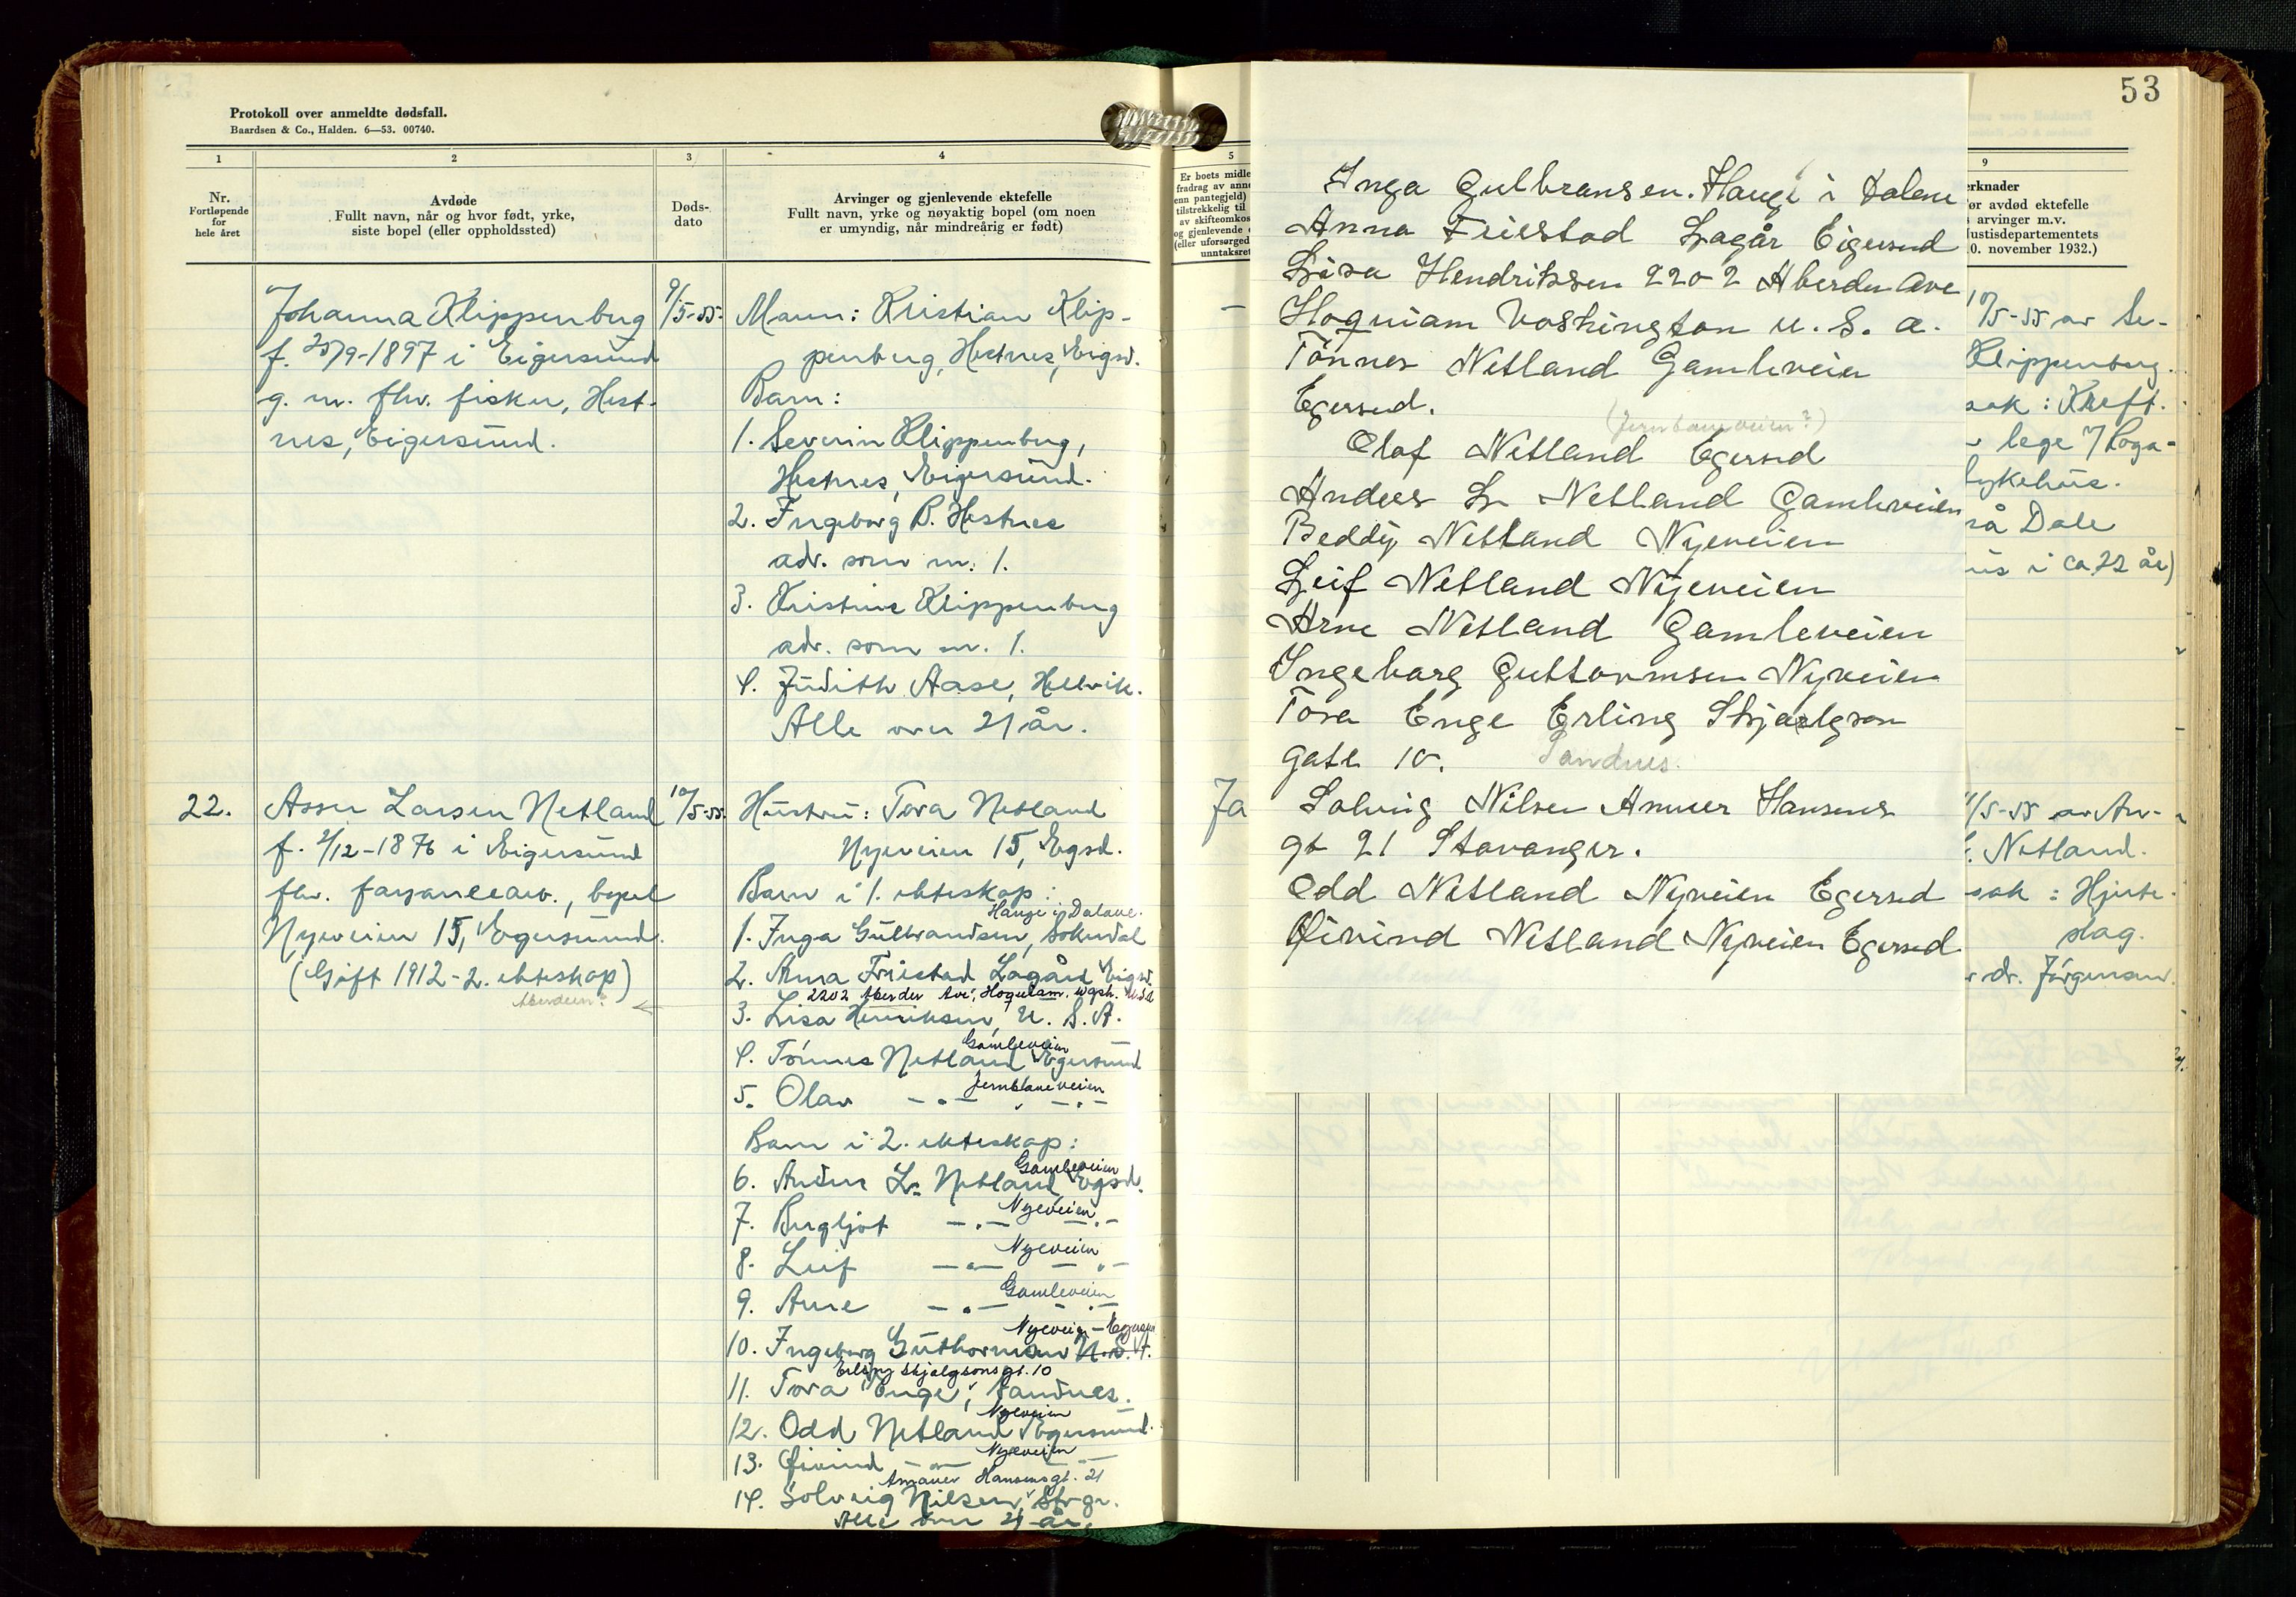 Protokoll over anmeldte dødsfall.
Baardsen & Co., Halden. 6—53. 00740.
1
2
3
4
Nr.
Fortløpende
for
hele året
Avdøde
Fullt navn, når og hvor født, yrke,
siste bopel (eller oppholdssted)
Døds-
dato
Arvinger og gjenlevende ektefelle
Fullt navn, yrke og nøyaktig bopel (om noen
er umyndig, når mindreårig er født)
Johanna Klippenberg
f. 25/9-1897 i Eigersund
g. m. fhv. fisker, Hest-
nes, Eigersund.
9/5-55.
Mann: Kristian Klip-
penberg, Hestnes, Eigsd.
Barn:
1. Severin Klippenberg,
Hestnes, Eigersund.
2. Ingeborg B. Hestnes
adr. som nr. 1.
3. Kristine Klippenberg
adr. som nr. 1.
4. Judith Aase, Hellvik.
Alle over 21 år.
22.
Asser Larsen Netland
f. 2/12-1876 i Eigersund
fhv. fayansearb., bopel
Nyeveien 15, Egersund.
(Gift 1912 - 2. ekteskap)
Aberdeen?
10/5-55.
Hustru: Tora Netland
Nyeveien 15, Egsd.
Barn i 1. ekteskap:
Hauge i Dalane.
1. Inga Gulbrandsen, Sokndal
2. Anna Friestad Lagård Eigsd.
2202 Aberder Ave, Hoquiam. Wash. USA
3. Lisa Henriksen, U. S. A.
Gamleveien
4. Tönnes Netland Egersund
Jernbaneveien
5. Olav —"— —"—
Barn i 2. ekteskap:
Gamleveien
6. Anders L. Netland Egsd.
Nyeveien
7. Bergljot —"— —"—
Nyeveien
8. Leif —"— —"—
Gamleveien
9. Arne —"— —"—
Nyeveien - Egersun
10. Ingeborg Guthormsen U.S.A.
Erling Skjalgsonsgt. 10
11. Tora Enge, Sandnes.
Nyeveien
12. Odd Netland Egersund.
Nyeveien
13. Øivind —"— —"—
Amauer Hansensgt. 21
14. Solveig Nilsen, Stvgr.
Alle over 21 år.
5
Er boets midle
fradrag av anne
enn pantegjeld)
tilstrekkelig til
av skifteomkos
og gjenlevende e
(eller uforsørged
unntaksret
—
Ja
Inga Gulbransen. Hauge i Dalene
Anna Friestad Lagår Eigersund
Lisa Hendriksen 2202 Aberden Ave
Hoquiam Woshington U. S. a.
Tönnes Netland Gamleveien
Egersund.
(Jernbaneveien?)
Olaf Netland Egersund
Anders L. Netland Gamleveien
Beddy Netland Nyeveien
Leif Netland Nyeveien
Arne Netland Gamleveien
Ingeborg Guttormsen Nyveien
Tora Enge Erling Skjaelgson
gate 10. Sandnes.
Solvig Nilsen Amuer Hansens
gt 21 Stavanger.
Odd Netland Nyveien Egersund
Øivind Netland Nyveien Egersund
53
9
erknader
ør avdød ektefelle
s arvinger m.v.
Justisdepartementets
0. november 1932.)
10/5-55 av Se-
Klippenberg.
sak: Kreft.
lege
sykehus.
rå Dale
us i ca 22 år)
11/5-55 av An-
Netland.
sak: Hjerte-
slag.
dr. Jörgensen.